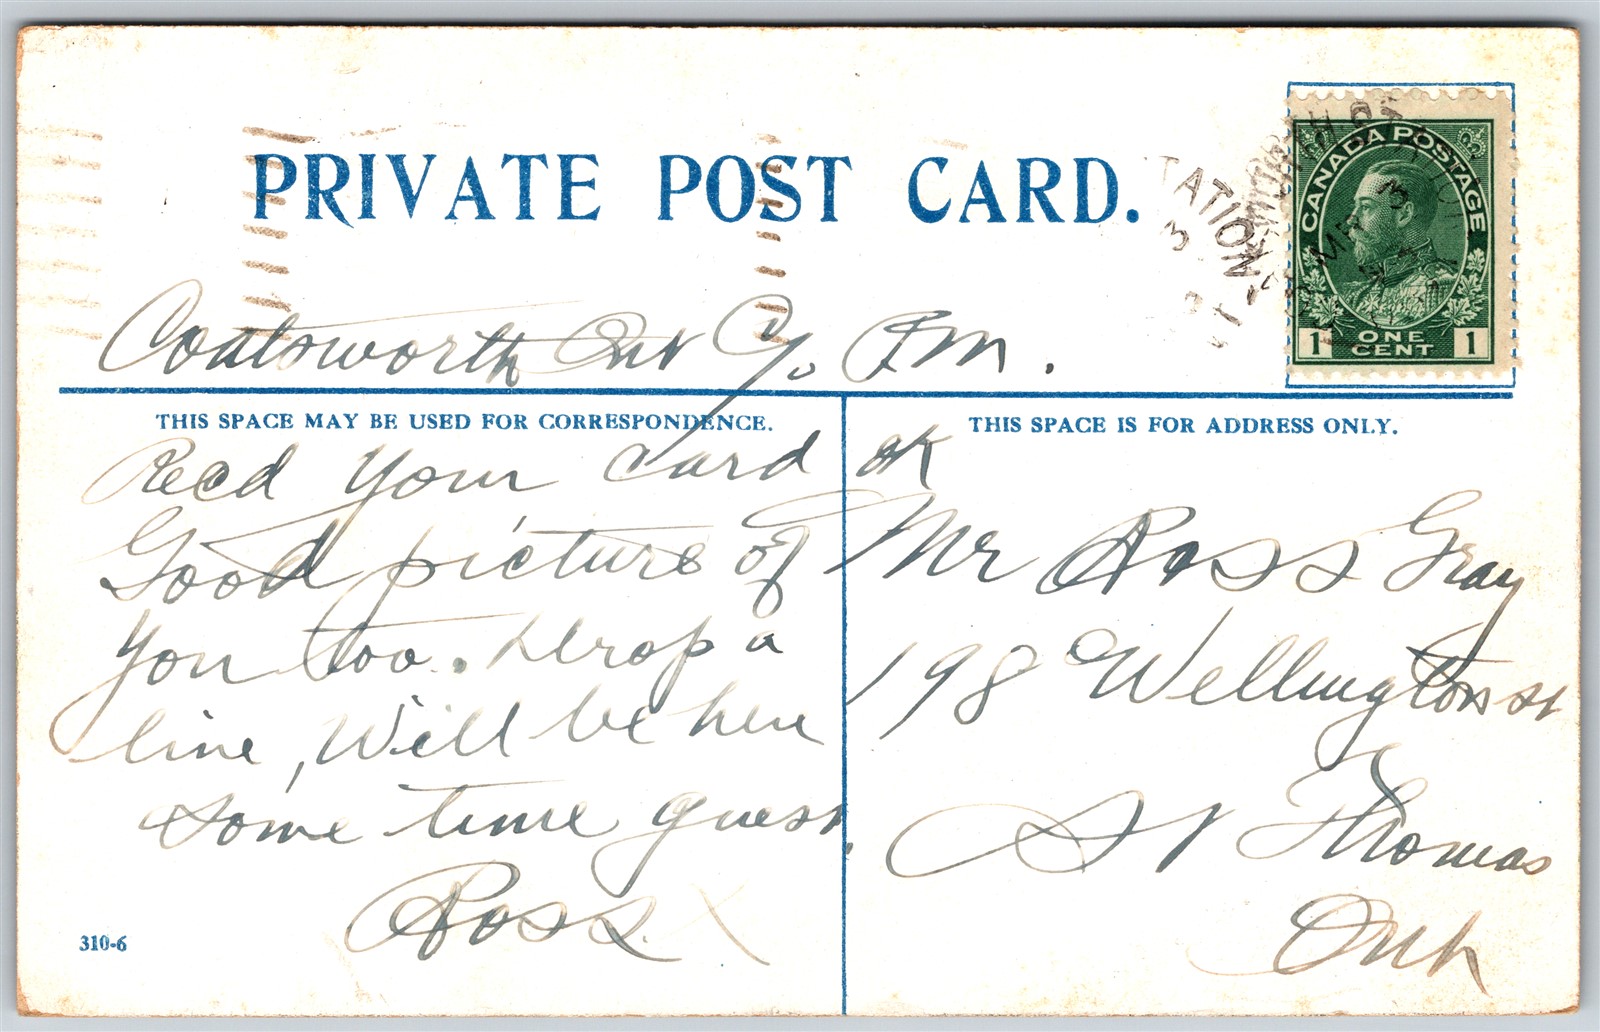 PRIVATE POST CARD.
CANADA POSTAGE
1 ONE CENT 1
TATION
Coatsworth Ont
THIS SPACE MAY BE USED FOR CORRESPONDENCE.
Recd your card ok
Good picture of
you too. Drop a
line, Will be here
some time guess.
Ross. X
310-6
THIS SPACE IS FOR ADDRESS ONLY.
Mr Ross Gray
198 Wellington st
St Thomas
Ont